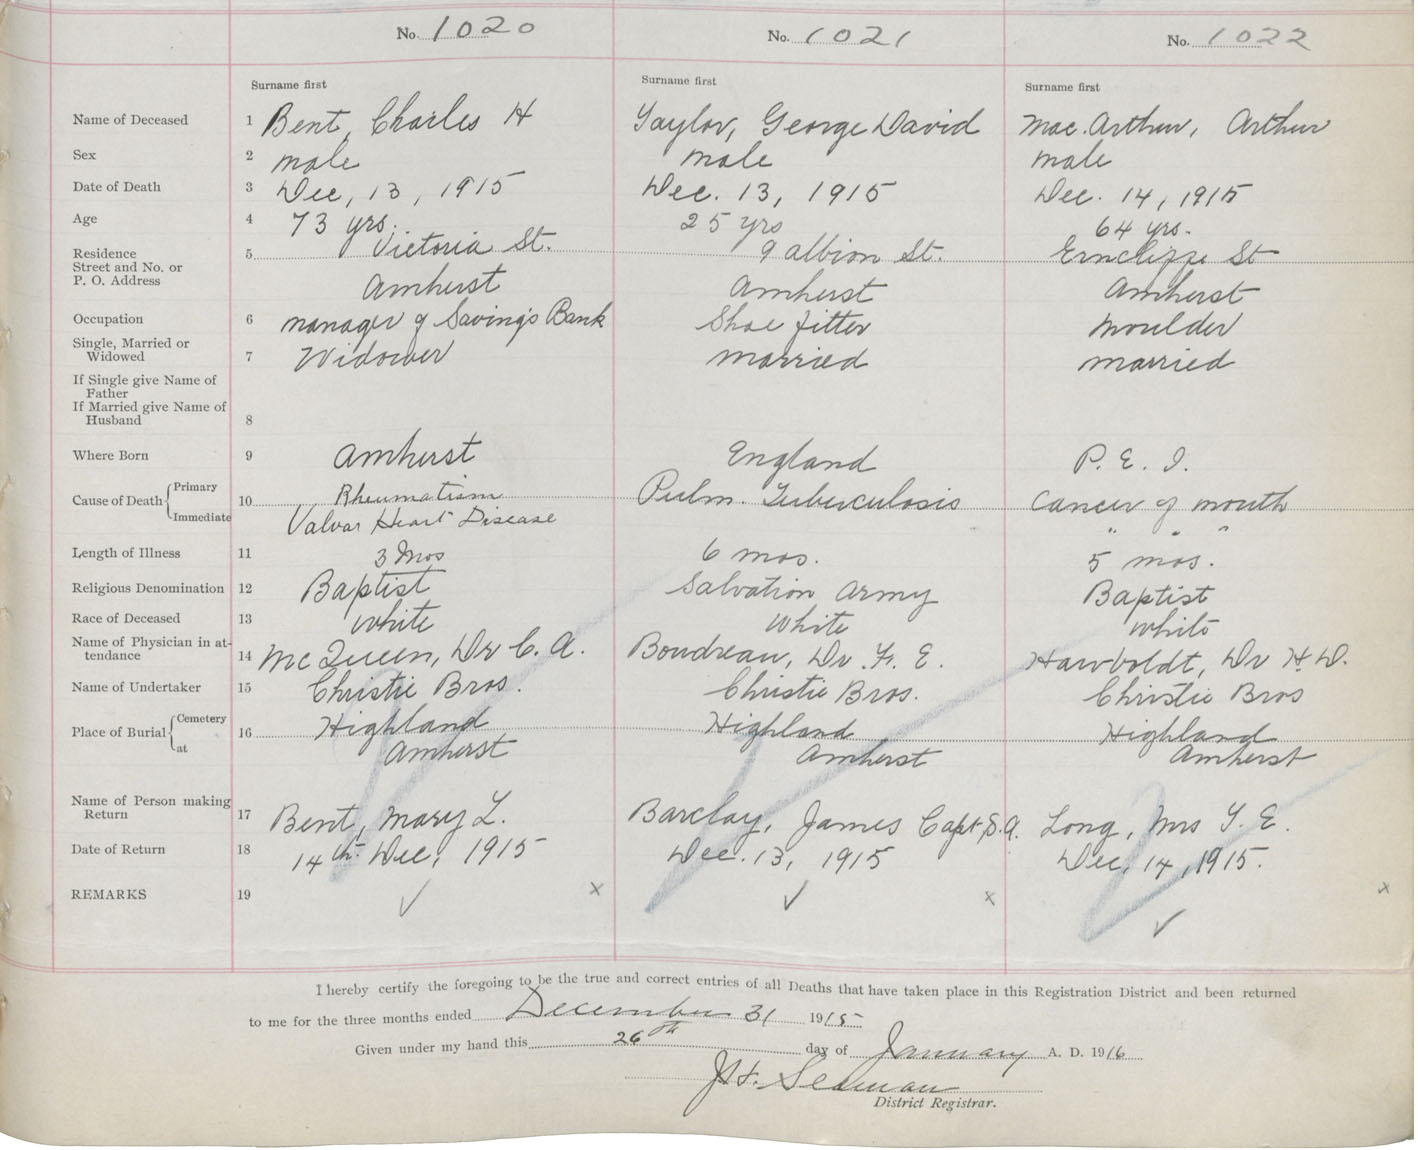 No. 1020 No. 1021 No. 1022
Surname first Surname first Surname first
Name of Deceased 1 Bent, Charles H Taylor, George David Mac.Arthur, Arthur
Sex 2 male male male
Date of Death 3 Dec, 13, 1915 Dec. 13, 1915 Dec. 14, 1915
Age 4 73 yrs. 25 yrs 64 yrs.
Residence 5 Victoria St. 9 Albion St. Erncliffe St
Street and No. or
P. O. Address Amherst Amherst Amherst
Occupation 6 manager of Savings Bank Shoe fitter moulder
Single, Married or
Widowed 7 Widower married married
If Single give Name of
Father
If Married give Name of
Husband 8
Where Born 9 Amherst England P. E. I.
Cause of Death { Primary 10 Rheumatism Pulm. Tuberculosis Cancer of mouth
Immediate Valvar Heart Disease " " "
Length of Illness 11 3 Mos 6 mos. 5 mos.
Religious Denomination 12 Baptist Salvation Army Baptist
Race of Deceased 13 White White White
Name of Physician in at-
tendance 14 McQueen, Dr C. A. Boudreau, Dr. F. E. Hawboldt, Dr H. D.
Name of Undertaker 15 Christie Bros. Christie Bros. Christie Bros
Place of Burial { Cemetery 16 Highland Highland Highland
at Amherst Amherst Amherst
Name of Person making
Return 17 Bent, Mary L. Barclay, James Capt. S.A. Long, Mrs T. E.
Date of Return 18 14th. Dec, 1915 Dec. 13, 1915 Dec, 14, 1915.
REMARKS 19 ✓ x ✓ x ✓ x
I hereby certify the foregoing to be the true and correct entries of all Deaths that have taken place in this Registration District and been returned
to me for the three months ended December 31 1915
Given under my hand this 26th day of January A. D. 1916
Seaman
District Registrar.